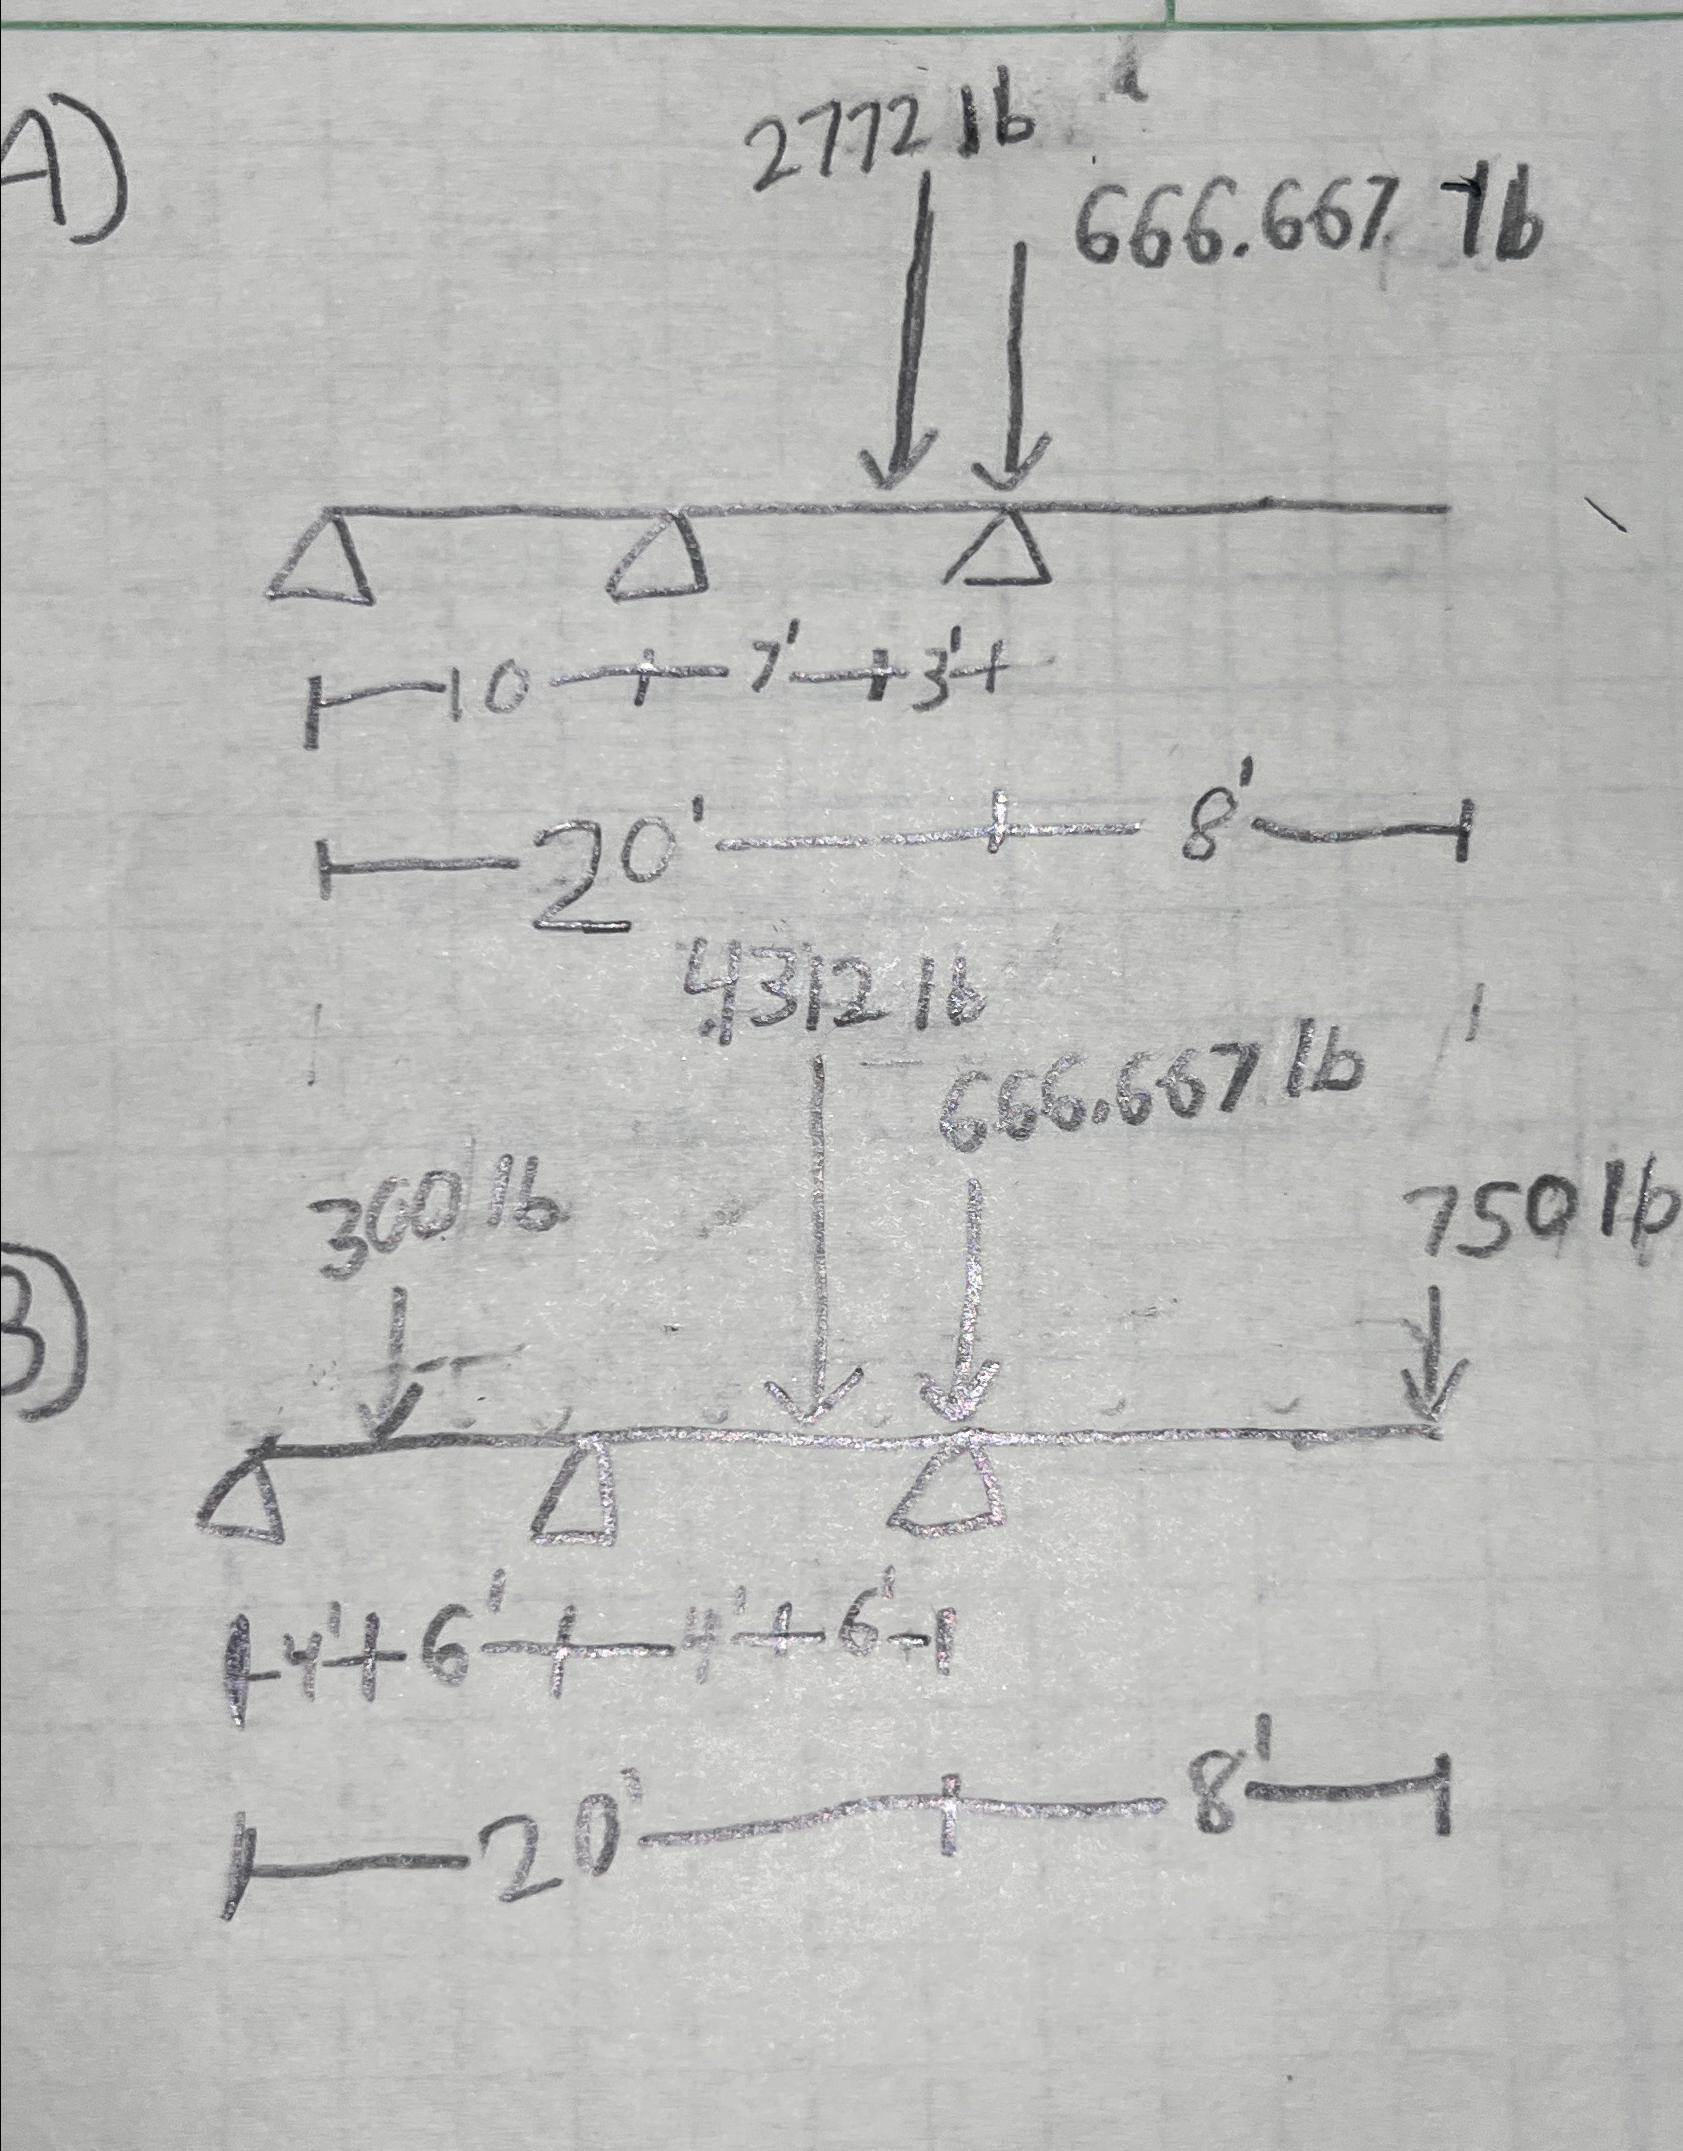 A)
2772 lb
666.667 lb
10 7' 3'
20' 8'
4312 lb
666.667 lb
300 lb
750 lb
B)
4' 6' 4' 6'
20' 8'